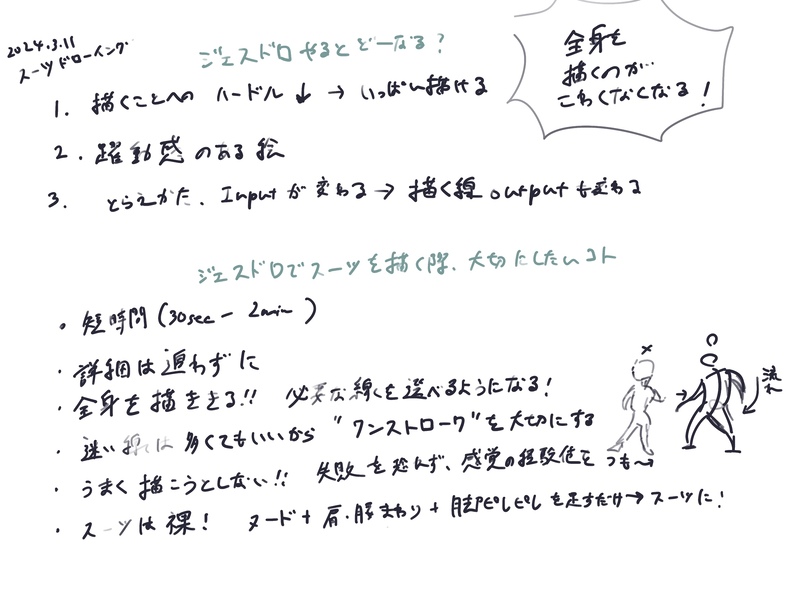 2024.3.11
スーツドローイング
ジェスドロやるとどーなる?
全身を
描くのが…
こわくなくなる!
1. 描くことへの ハードル ↓ → いっぱい描ける
2. 躍動感のある絵
3. とらえかた、Inputが変わる → 描く線 outputも変わる
ジェスドロでスーツを描く際、大切にしたいコト
・短時間(30sec - 2min)
・詳細は追わずに
・全身を描ききる!! 必要な線を選べるようになる!
・迷い線は多くてもいいから "ワンストローク"を大切にする
・うまく描こうとしない!! 失敗を恐れず、感覚の経験値をつも〜
・スーツは裸! ヌード+肩・脇まわり+ピレピレを足すだけ→スーツに!
×
○
流れ